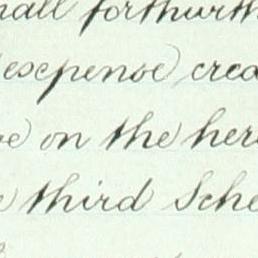 hall forthwith
expense crea
on the her
third Sche